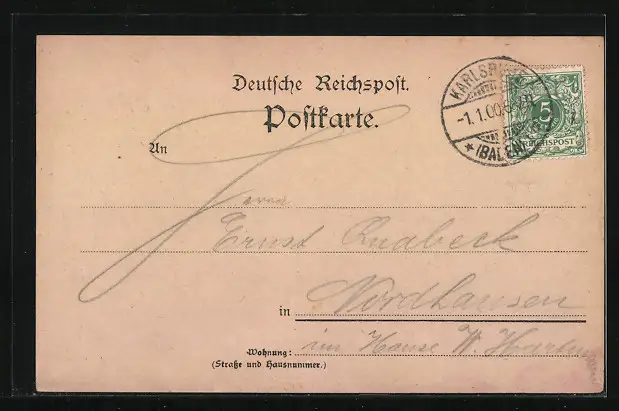 Deutsche Reichspost.
Postkarte.
KARLSRUHE
-1.1.00.
* (BADEN)
5
REICHSPOST
An
Herrn
Ernst
Nordhausen
in
im Hause W.
Wohnung:
(Straße und Hausnummer.)